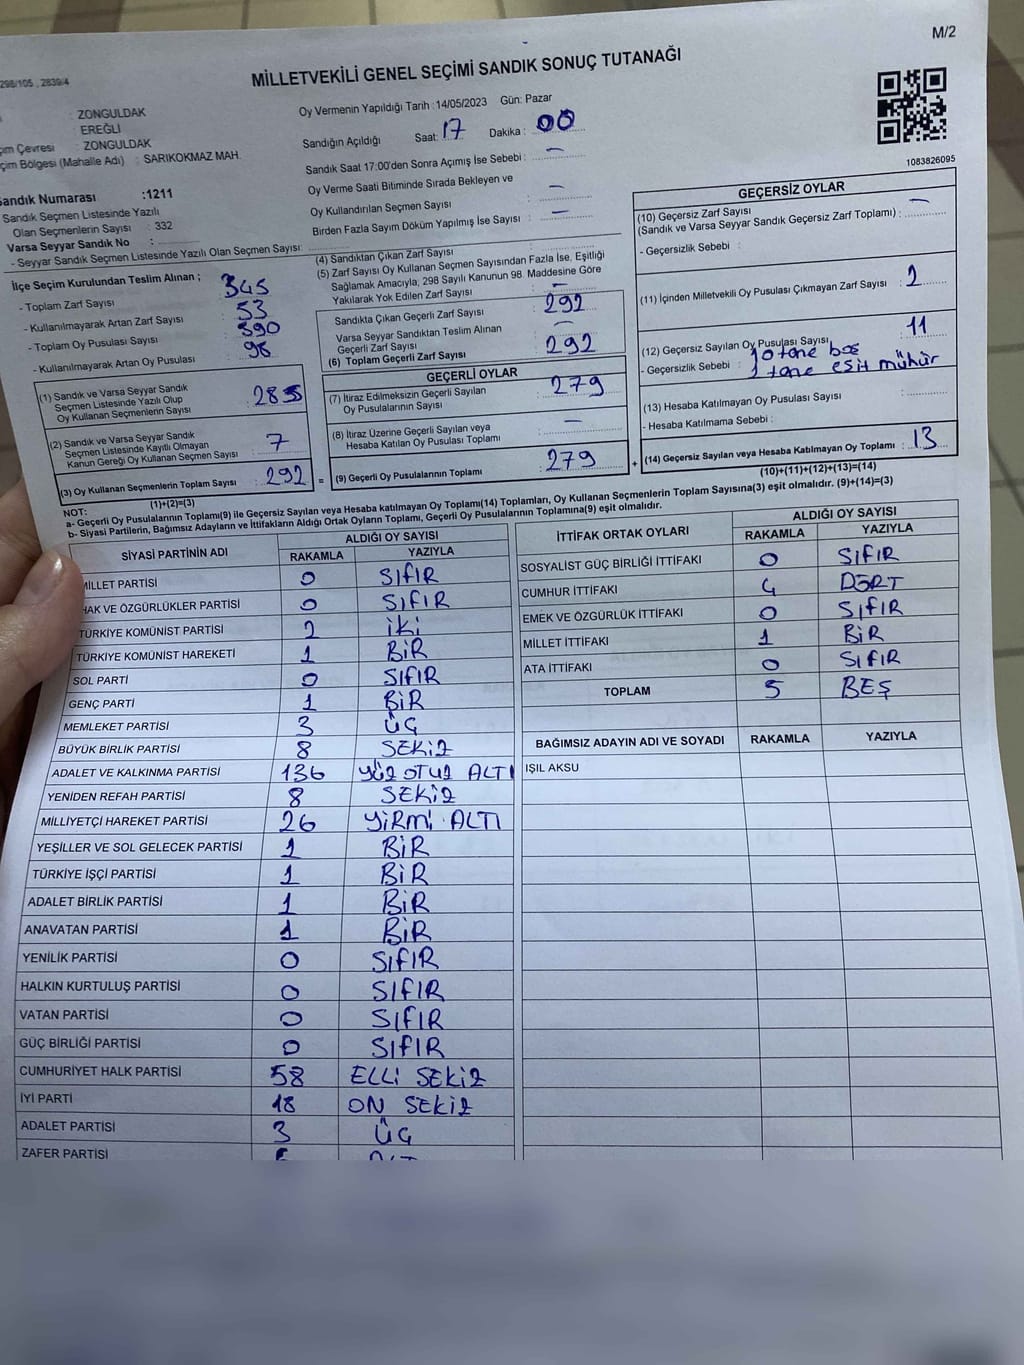 M/2
298/105 , 2839/4
MİLLETVEKİLİ GENEL SEÇİMİ SANDIK SONUÇ TUTANAĞI
: ZONGULDAK
: EREĞLİ
çim Çevresi : ZONGULDAK
çim Bölgesi (Mahalle Adı) : SARIKOKMAZ MAH.
Sandık Numarası :1211
Sandık Seçmen Listesinde Yazılı
Olan Seçmenlerin Sayısı : 332
Varsa Seyyar Sandık No :
- Seyyar Sandık Seçmen Listesinde Yazılı Olan Seçmen Sayısı:
Oy Vermenin Yapıldığı Tarih : 14/05/2023 Gün: Pazar
Sandığın Açıldığı Saat: 17 Dakika : 00
Sandık Saat 17:00'den Sonra Açımış İse Sebebi : —
Oy Verme Saati Bitiminde Sırada Bekleyen ve
Oy Kullandırılan Seçmen Sayısı : —
Birden Fazla Sayım Döküm Yapılmış İse Sayısı : —
1083826095
İlçe Seçim Kurulundan Teslim Alınan ;
- Toplam Zarf Sayısı : 345
- Kullanılmayarak Artan Zarf Sayısı : 53
- Toplam Oy Pusulası Sayısı : 390
- Kullanılmayarak Artan Oy Pusulası : 98
(1) Sandık ve Varsa Seyyar Sandık
Seçmen Listesinde Yazılı Olup
Oy Kullanan Seçmenlerin Sayısı : 285
(2) Sandık ve Varsa Seyyar Sandık
Seçmen Listesinde Kayıtlı Olmayan
Kanun Gereği Oy Kullanan Seçmen Sayısı : 7
(3) Oy Kullanan Seçmenlerin Toplam Sayısı : 292
(1)+(2)=(3)
(4) Sandıktan Çıkan Zarf Sayısı :
(5) Zarf Sayısı Oy Kullanan Seçmen Sayısından Fazla İse, Eşitliği
Sağlamak Amacıyla, 298 Sayılı Kanunun 98. Maddesine Göre
Yakılarak Yok Edilen Zarf Sayısı : —
Sandıkta Çıkan Geçerli Zarf Sayısı : 292
Varsa Seyyar Sandıktan Teslim Alınan
Geçerli Zarf Sayısı : —
(6) Toplam Geçerli Zarf Sayısı : 292
GEÇERLİ OYLAR
(7) İtiraz Edilmeksizin Geçerli Sayılan
Oy Pusulalarının Sayısı : 279
(8) İtiraz Üzerine Geçerli Sayılan veya
Hesaba Katılan Oy Pusulası Toplamı : —
= (9) Geçerli Oy Pusulalarının Toplamı : 279 +
GEÇERSİZ OYLAR
(10) Geçersiz Zarf Sayısı
(Sandık ve Varsa Seyyar Sandık Geçersiz Zarf Toplamı) : —
- Geçersizlik Sebebi :
(11) İçinden Milletvekili Oy Pusulası Çıkmayan Zarf Sayısı : 2
(12) Geçersiz Sayılan Oy Pusulası Sayısı : 11
- Geçersizlik Sebebi : 10 tane boş
1 tane eşit mühür
(13) Hesaba Katılmayan Oy Pusulası Sayısı :
- Hesaba Katılmama Sebebi :
(14) Geçersiz Sayılan veya Hesaba Katılmayan Oy Toplamı : 13
(10)+(11)+(12)+(13)=(14)
NOT:
a- Geçerli Oy Pusulalarının Toplamı(9) ile Geçersiz Sayılan veya Hesaba katılmayan Oy Toplamı(14) Toplamları, Oy Kullanan Seçmenlerin Toplam Sayısına(3) eşit olmalıdır. (9)+(14)=(3)
b- Siyasi Partilerin, Bağımsız Adayların ve İttifakların Aldığı Ortak Oyların Toplamı, Geçerli Oy Pusulalarının Toplamına(9) eşit olmalıdır.
SİYASİ PARTİNİN ADI ALDIĞI OY SAYISI
RAKAMLA YAZIYLA
MİLLET PARTİSİ 0 SIFIR
HAK VE ÖZGÜRLÜKLER PARTİSİ 0 SIFIR
TÜRKİYE KOMÜNİST PARTİSİ 2 İKİ
TÜRKİYE KOMÜNİST HAREKETİ 1 BİR
SOL PARTİ 0 SIFIR
GENÇ PARTİ 1 BİR
MEMLEKET PARTİSİ 3 ÜÇ
BÜYÜK BİRLİK PARTİSİ 8 SEKİZ
ADALET VE KALKINMA PARTİSİ 136 YÜZ OTUZ ALTI
YENİDEN REFAH PARTİSİ 8 SEKİZ
MİLLİYETÇİ HAREKET PARTİSİ 26 YİRMİ ALTI
YEŞİLLER VE SOL GELECEK PARTİSİ 1 BİR
TÜRKİYE İŞÇİ PARTİSİ 1 BİR
ADALET BİRLİK PARTİSİ 1 BİR
ANAVATAN PARTİSİ 1 BİR
YENİLİK PARTİSİ 0 SIFIR
HALKIN KURTULUŞ PARTİSİ 0 SIFIR
VATAN PARTİSİ 0 SIFIR
GÜÇ BİRLİĞİ PARTİSİ 0 SIFIR
CUMHURİYET HALK PARTİSİ 58 ELLİ SEKİZ
İYİ PARTİ 18 ON SEKİZ
ADALET PARTİSİ 3 ÜÇ
ZAFER PARTİSİ
İTTİFAK ORTAK OYLARI ALDIĞI OY SAYISI
RAKAMLA YAZIYLA
SOSYALİST GÜÇ BİRLİĞİ İTTİFAKI 0 SIFIR
CUMHUR İTTİFAKI 4 DÖRT
EMEK VE ÖZGÜRLÜK İTTİFAKI 0 SIFIR
MİLLET İTTİFAKI 1 BİR
ATA İTTİFAKI 0 SIFIR
TOPLAM 5 BEŞ
BAĞIMSIZ ADAYIN ADI VE SOYADI RAKAMLA YAZIYLA
IŞIL AKSU